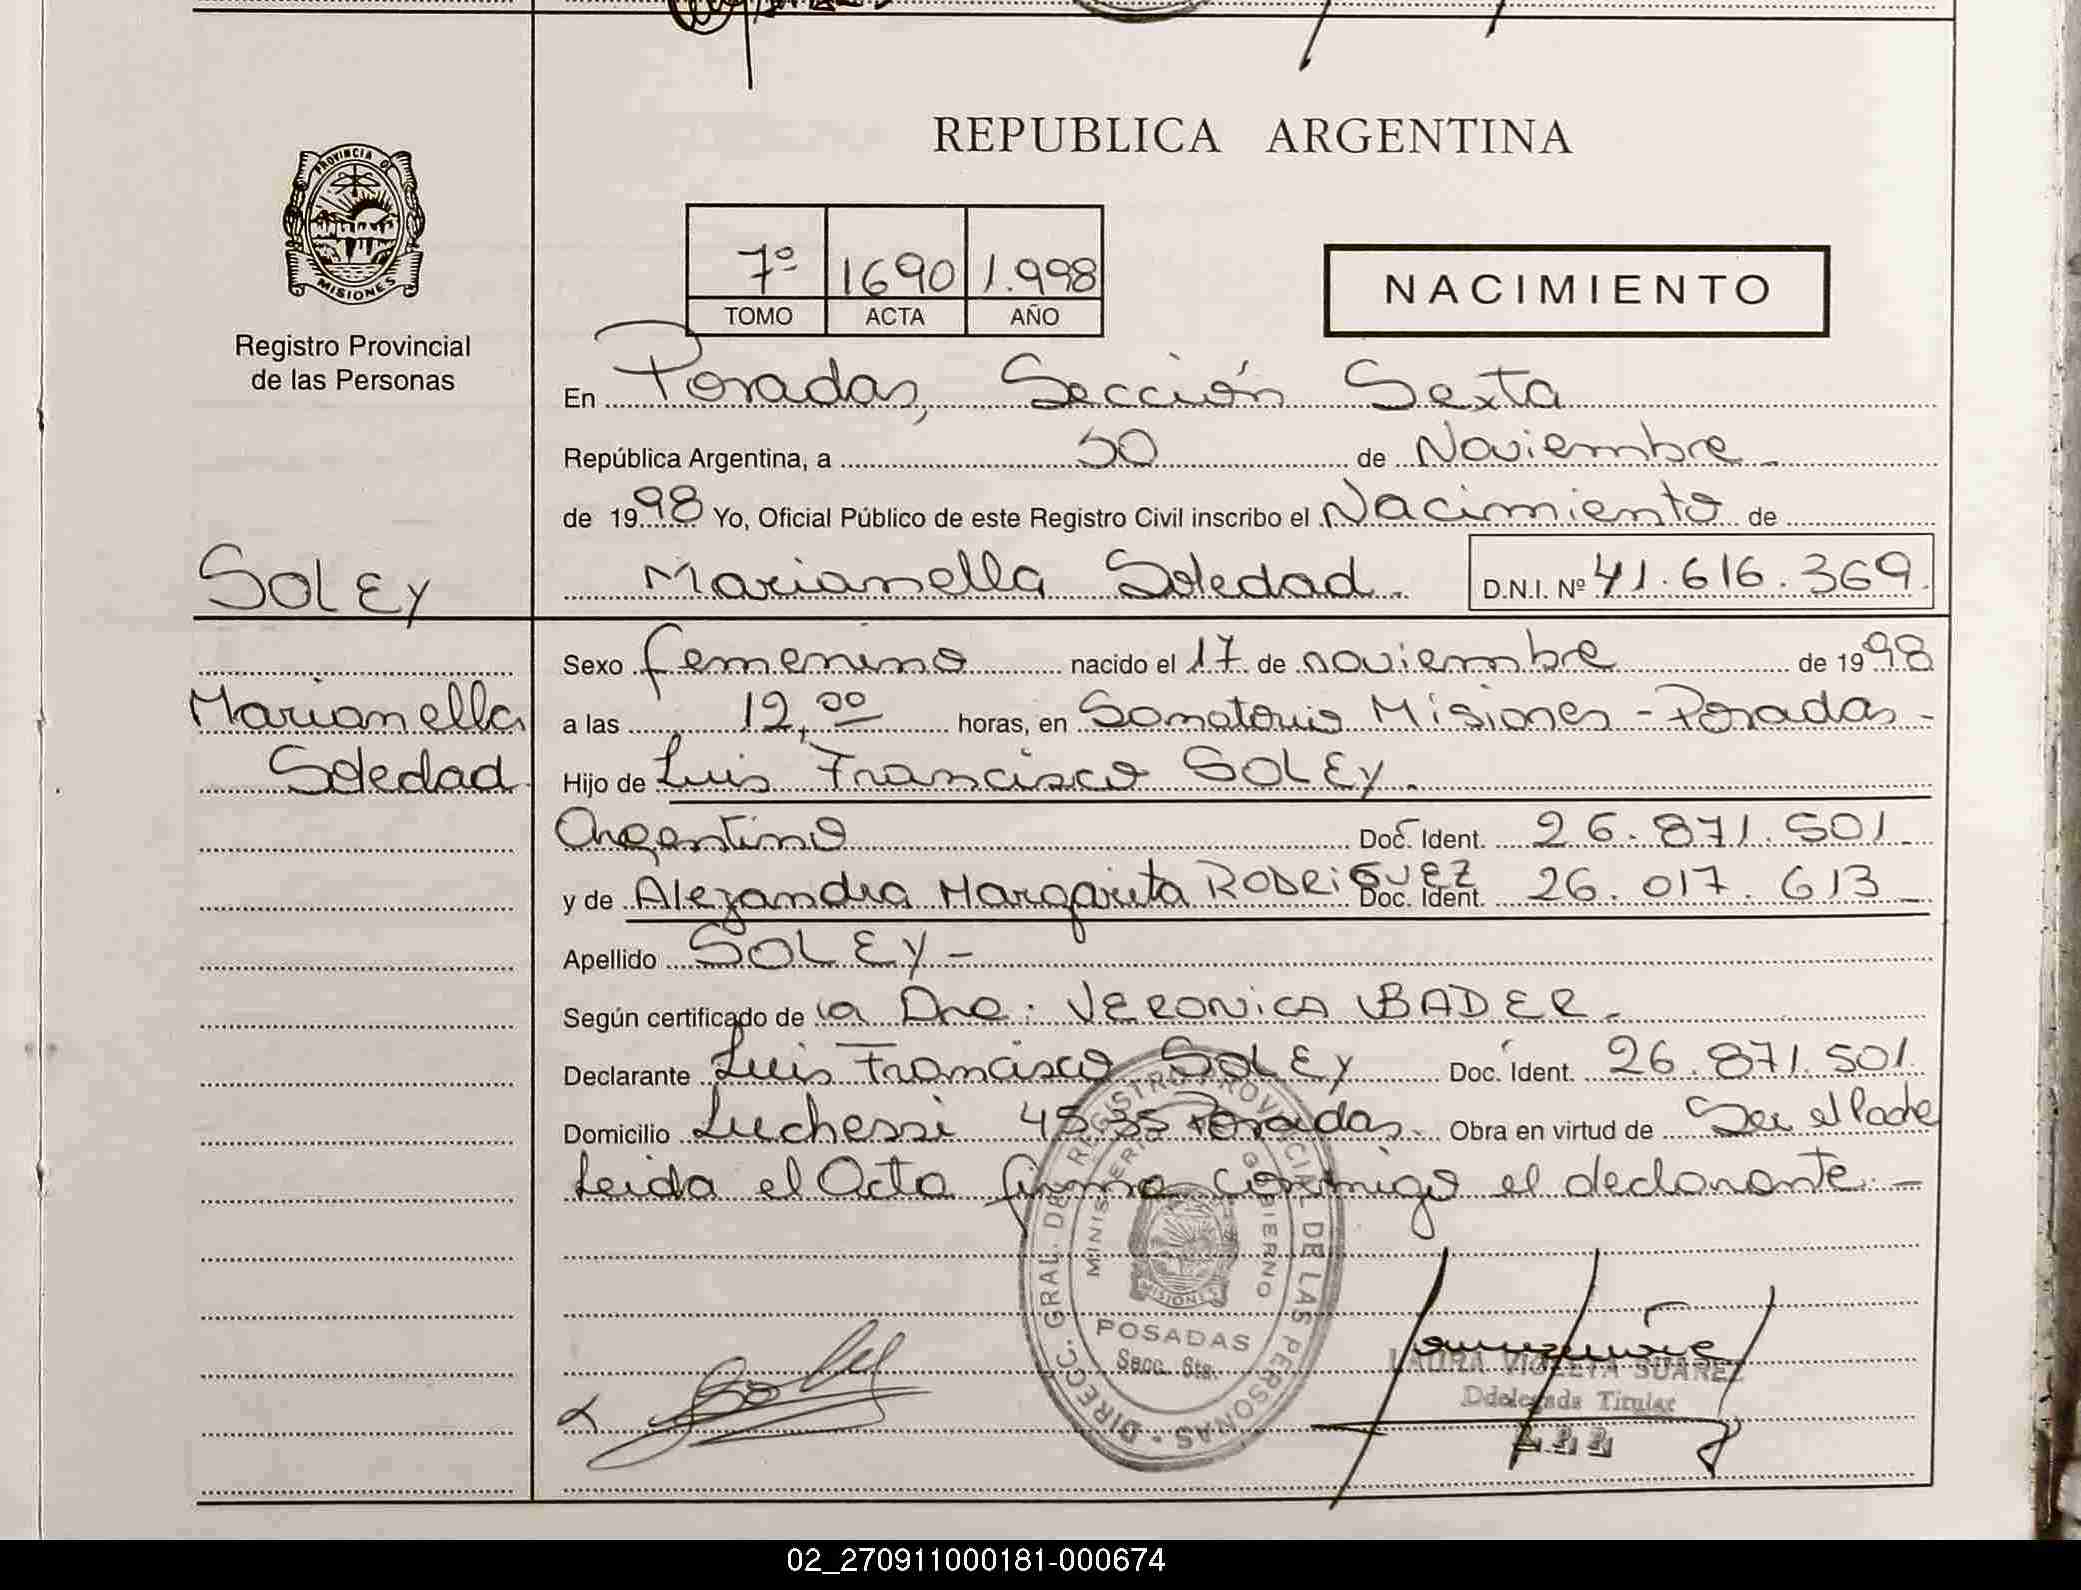 REPUBLICA ARGENTINA
PROVINCIA DE MISIONES
Registro Provincial
de las Personas
7º 1690 1.998
TOMO ACTA AÑO
NACIMIENTO
En Posadas, Sección Sexta
República Argentina, a 30 de Noviembre
de 1998 Yo, Oficial Público de este Registro Civil inscribo el Nacimiento de
Marianella Soledad. D.N.I. Nº 41.616.369.
SOLEY
Marianella
Soledad
Sexo femenino nacido el 17 de noviembre de 1998
a las 12,00 horas, en Sanatorio Misiones - Posadas -
Hijo de Luis Francisco SOLEY.
Argentino Doc. Ident. 26.871.501
y de Alejandra Margarita RODRIGUEZ Doc. Ident. 26.017.613
Apellido SOLEY -
Según certificado de la Dra: VERONICA BADER.
Declarante Luis Francisco SOLEY Doc. Ident. 26.871.501
Domicilio Luchessi 4535 Posadas Obra en virtud de Ser el Padre
Leida el Acta firma conmigo el declarante. -
DIRECC. GRAL. DEL REGISTRO PROVINCIAL DE LAS PERSONAS
MINISTERIO GOBIERNO
MISIONES
POSADAS
Secc. 6ta.
LAURA VIOLETA SUAREZ
Ddelegada Titular
02_270911000181-000674